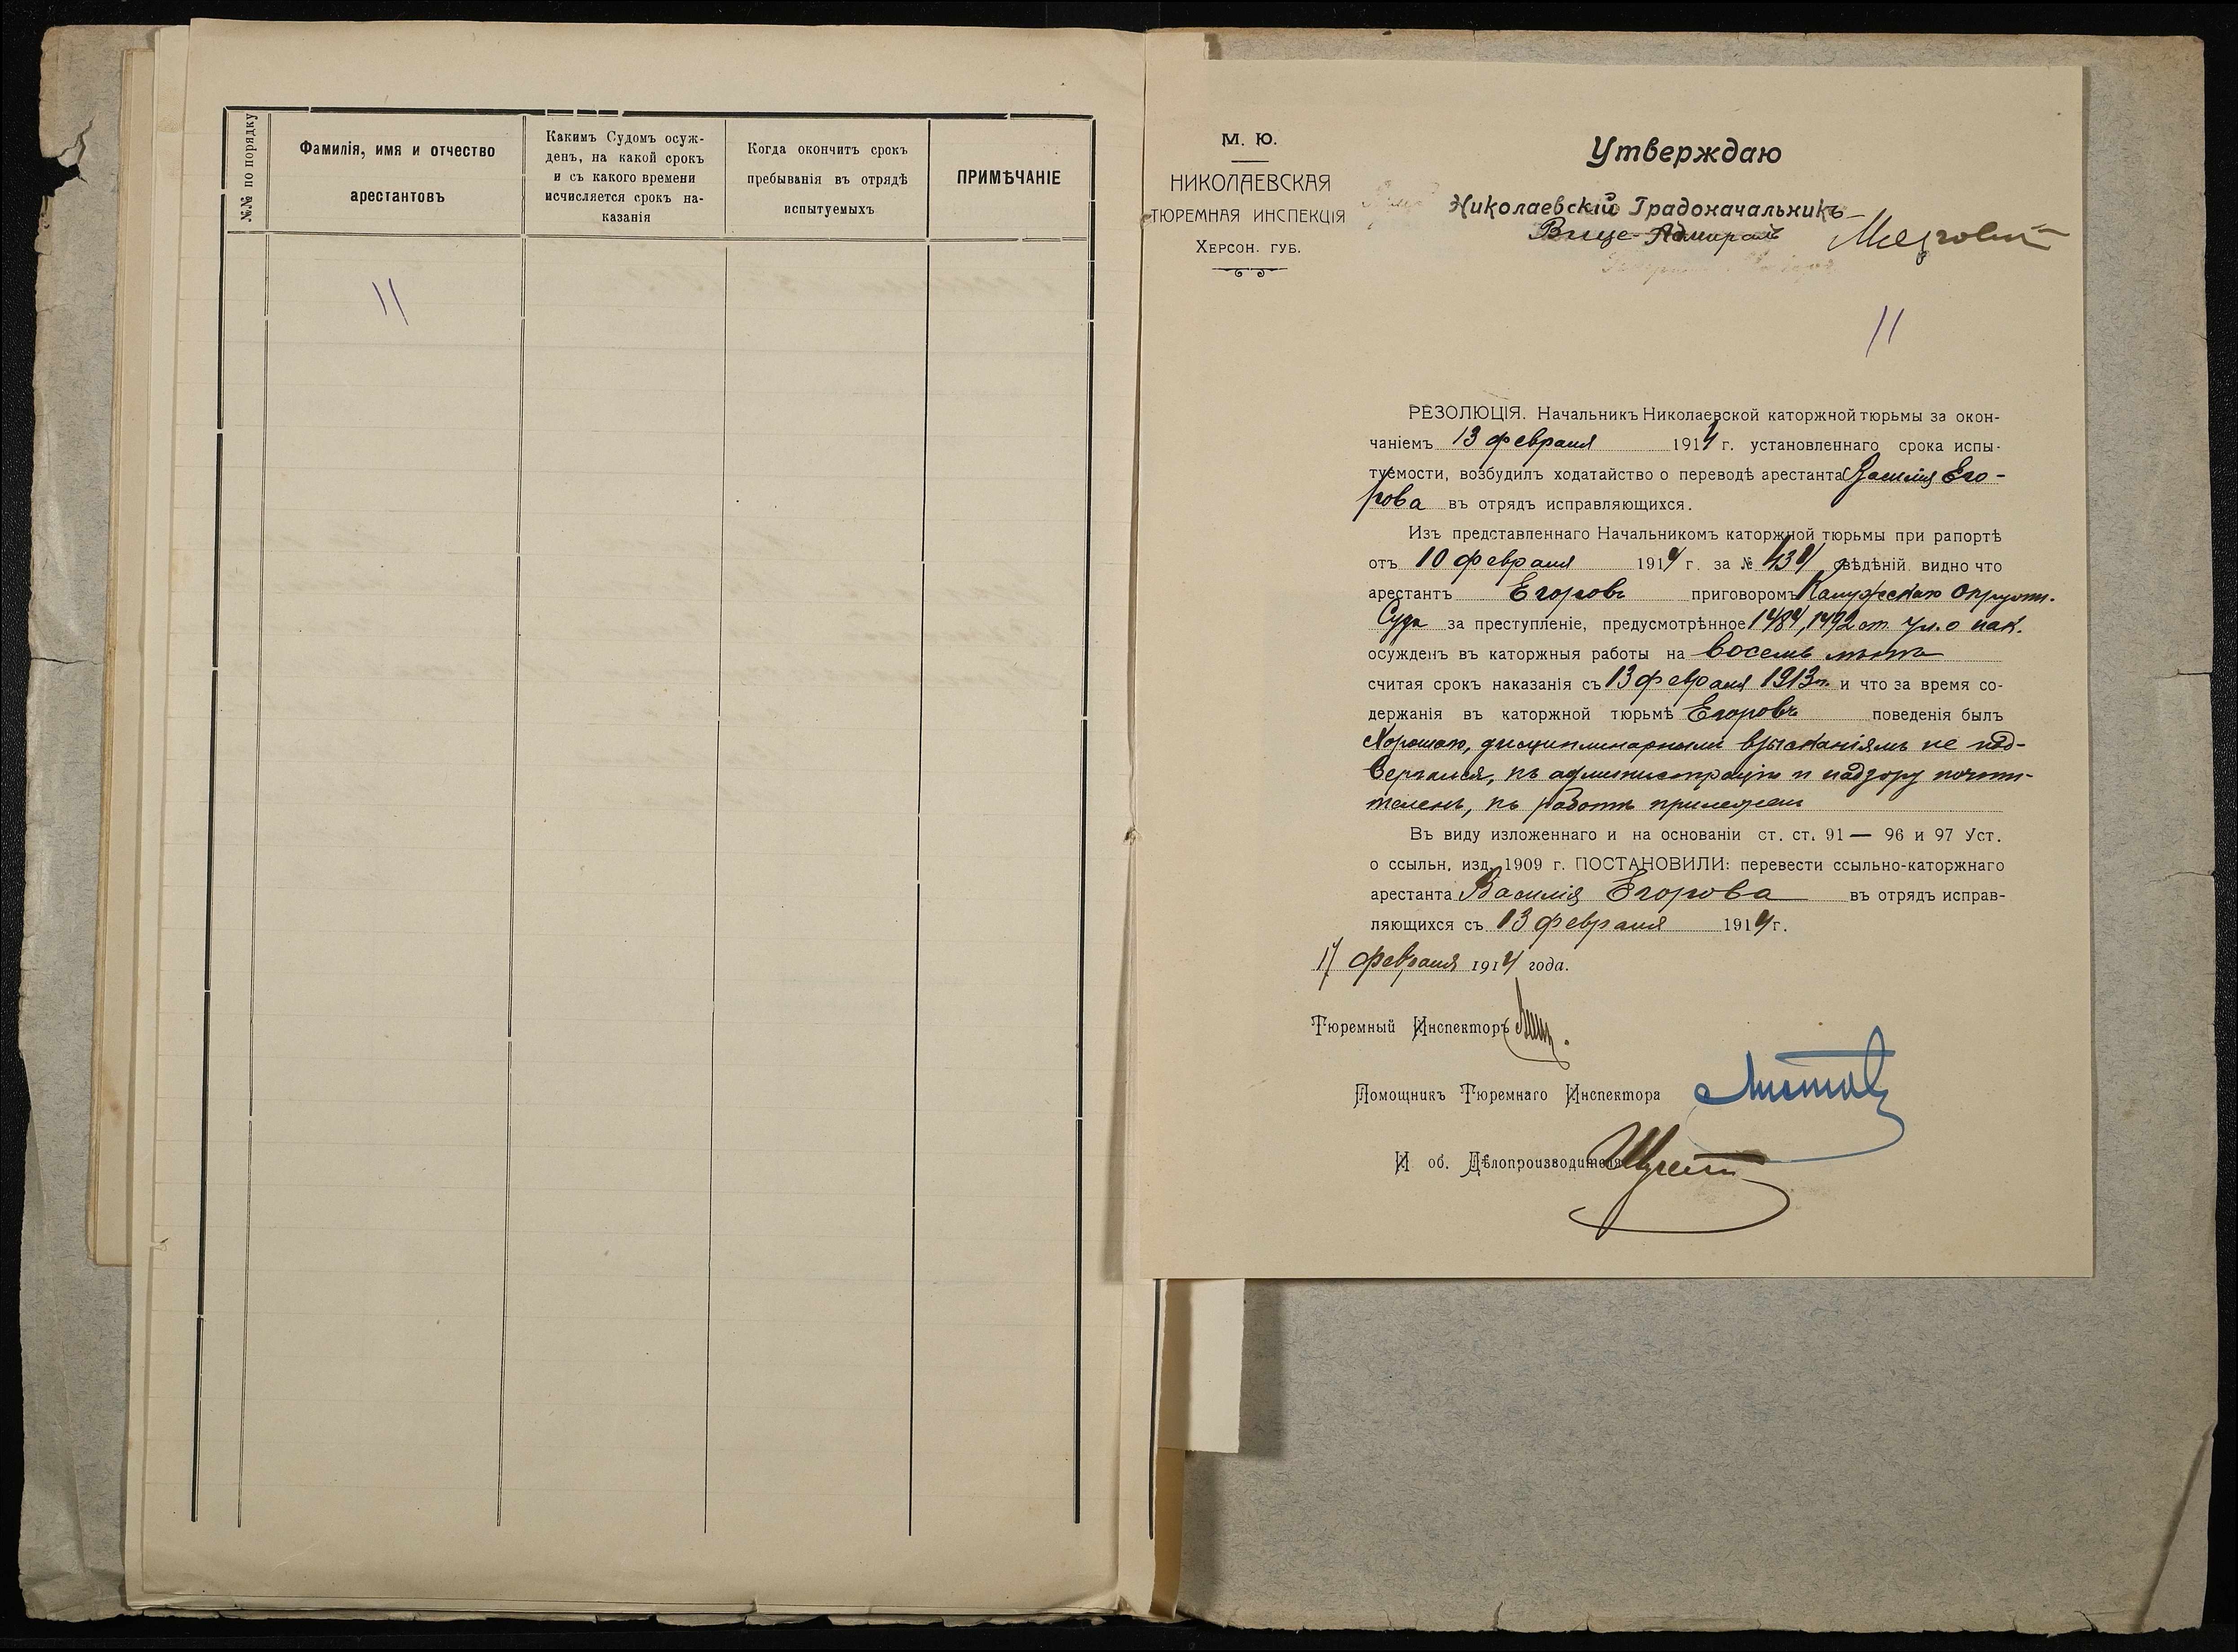 №№ по порядку
Фамилія, имя и отчество
арестантовъ
Какимъ Судомъ осуж-
денъ, на какой срокъ
и съ какого времени
исчисляется срокъ на-
казанія
Когда окончитъ срокъ
пребыванія въ отрядѣ
испытуемыхъ
ПРИМѢЧАНІЕ
11
М. Ю.
НИКОЛАЕВСКАЯ
ТЮРЕМНАЯ ИНСПЕКЦІЯ
ХЕРСОН. ГУБ.
Утверждаю
Николаевскій Градоначальникъ
Вице-Адмиралъ
11
РЕЗОЛЮЦІЯ. Начальникъ Николаевской каторжной тюрьмы за окон-
чаніемъ 13 февраля 1914 г. установленнаго срока испы-
туемости, возбудилъ ходатайство о переводѣ арестанта Василія Его-
рова въ отрядъ исправляющихся.
Изъ представленнаго Начальникомъ каторжной тюрьмы при рапортѣ
отъ 10 февраля 1914 г. за № 434 свѣдѣній видно что
арестантъ Егоровъ приговоромъ Калужскаго Окружн.
Суда за преступленіе, предусмотрѣнное 1484, 1492 ст. Ул. о нак.
осужденъ въ каторжныя работы на восемь лѣтъ
считая срокъ наказанія съ 13 февраля 1913 г. и что за время со-
держанія въ каторжной тюрьмѣ Егоровъ поведенія былъ
хорошаго, дисциплинарнымъ взысканіямъ не под-
вергался, къ администраціи и надзору почти-
теленъ, къ работѣ прилеженъ
Въ виду изложеннаго и на основаніи ст. ст. 91 — 96 и 97 Уст.
о ссыльн, изд. 1909 г. ПОСТАНОВИЛИ: перевести ссыльно-каторжнаго
арестанта Василія Егорова въ отрядъ исправ-
ляющихся съ 13 февраля 1914 г.
17 февраля 1914 года.
Тюремный Инспекторъ
Помощникъ Тюремнаго Инспектора
И об. Дѣлопроизводителя